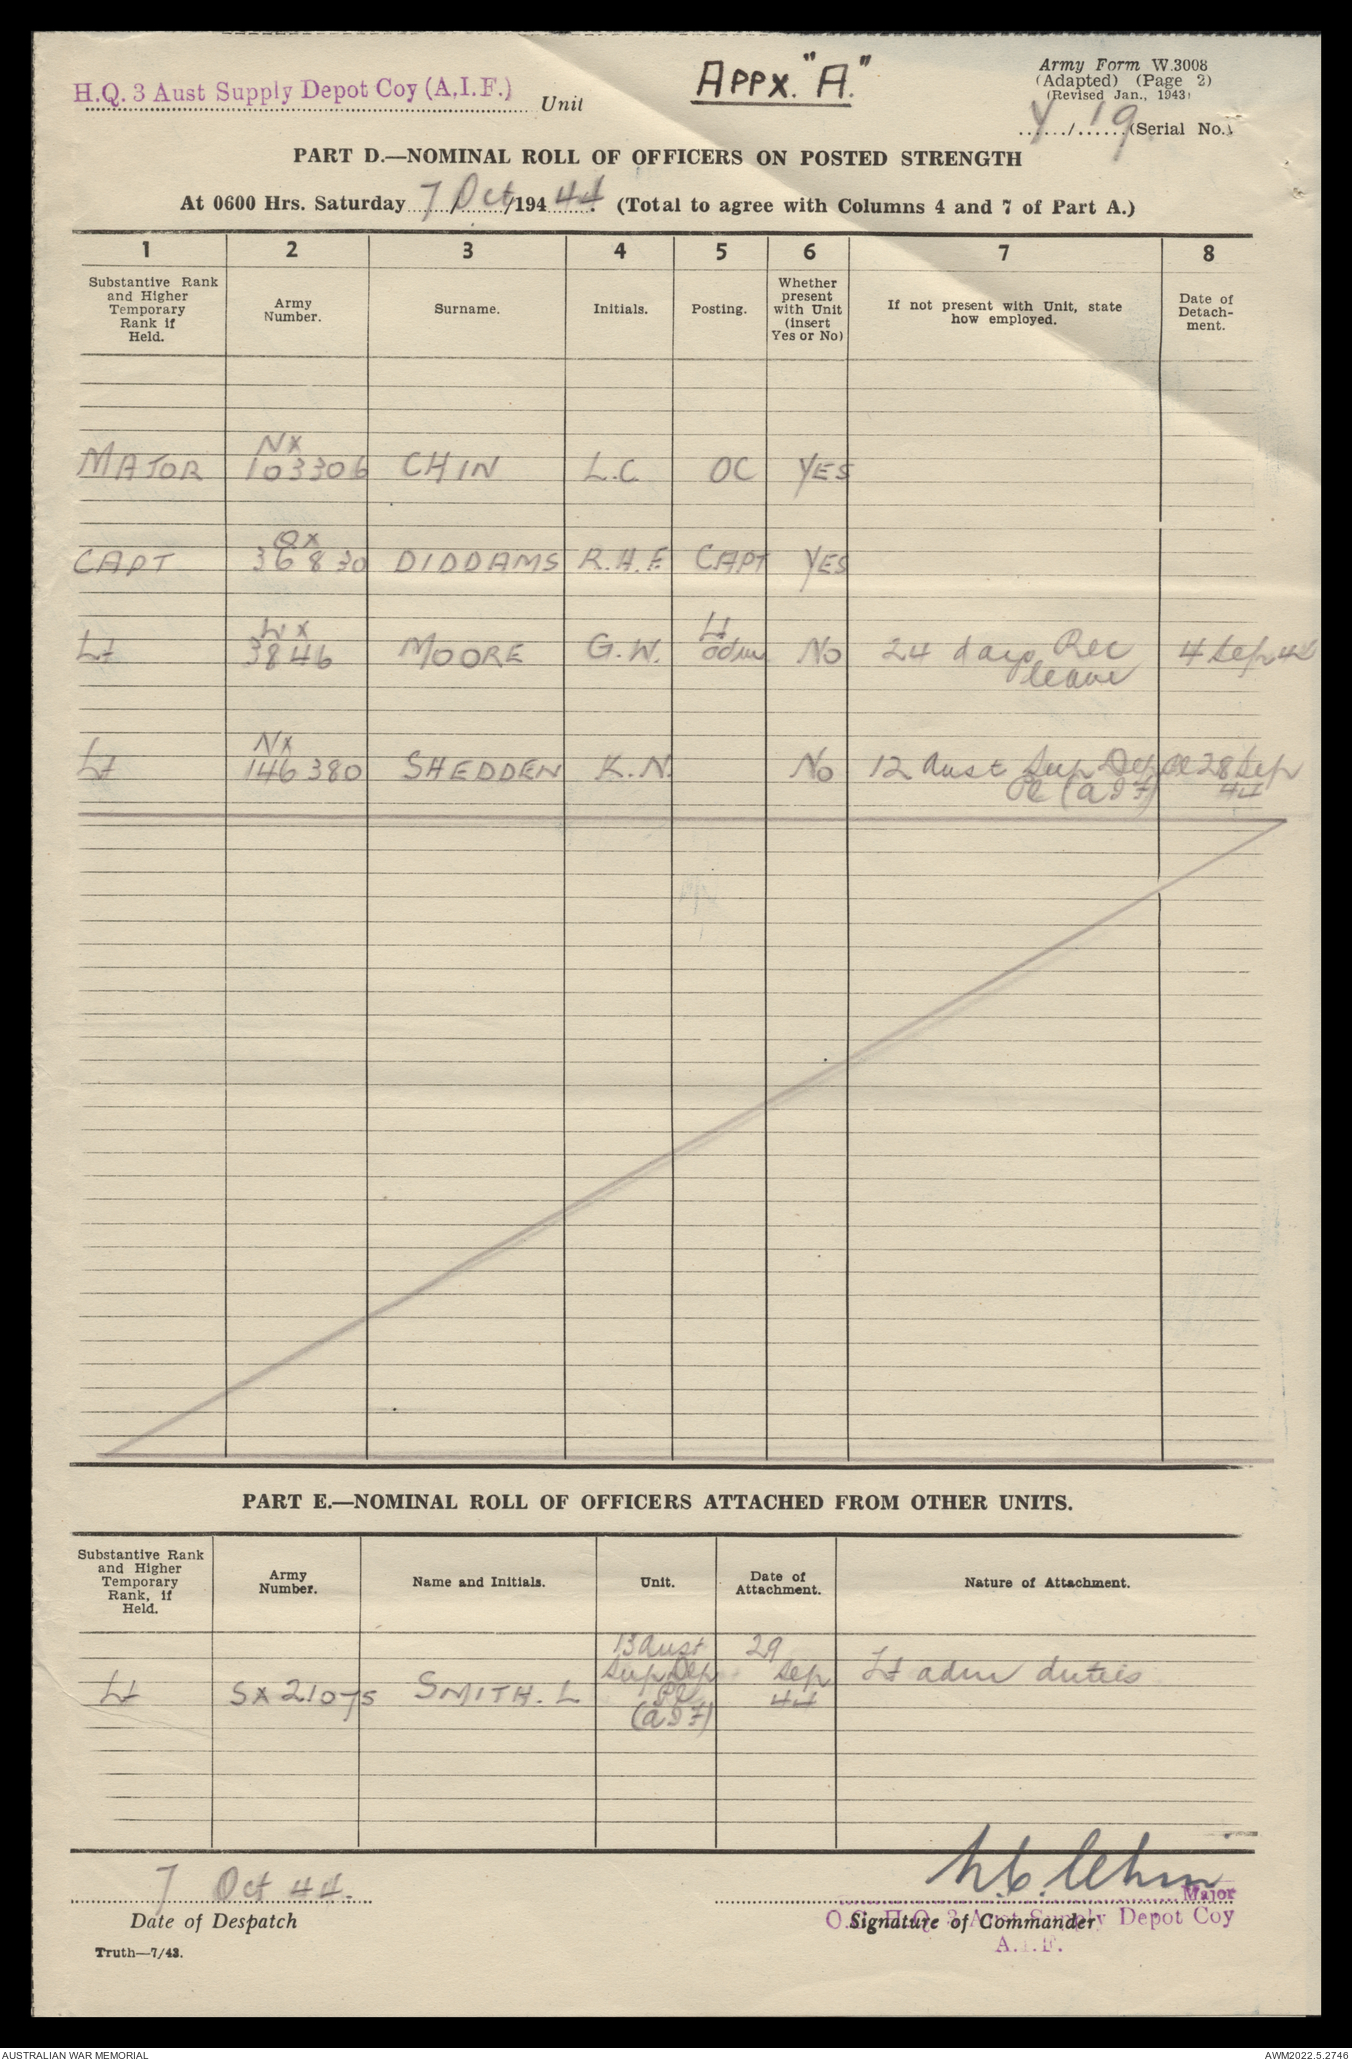 H.Q. 3 Aust Supply Depot Coy (A.I.F.) Unit
APPX. "A."
Army Form W.3008
(Adapted) (Page 2)
(Revised Jan., 1943)
Y / 19 (Serial No.)
PART D.—NOMINAL ROLL OF OFFICERS ON POSTED STRENGTH
At 0600 Hrs. Saturday 7/Oct/1944. (Total to agree with Columns 4 and 7 of Part A.)
1 2 3 4 5 6 7 8
Substantive Rank and Higher Temporary Rank if Held.
Army Number.
Surname.
Initials.
Posting.
Whether present with Unit (insert Yes or No)
If not present with Unit, state how employed.
Date of Detach-ment.
MAJOR NX 103306 CHIN L.C. OC YES
CAPT QX 36830 DIDDAMS R.H.F. CAPT YES
Lt WX 3846 MOORE G.W. Lt adm No 24 days Rec leave 4 Sep 44
Lt NX 146380 SHEDDEN K.N. No 12 Aust Sup Dep Pl (AIF) 28 Sep 44
PART E.—NOMINAL ROLL OF OFFICERS ATTACHED FROM OTHER UNITS.
Substantive Rank and Higher Temporary Rank, if Held.
Army Number.
Name and Initials.
Unit.
Date of Attachment.
Nature of Attachment.
Lt SX21075 SMITH. L 13 Aust Sup Dep Pl (AIF) 29 Sep 44 Lt adm duties
7 Oct 44.
Date of Despatch
L.C. Chin
Major
O.C. H.Q. 3 Aust Supply Depot Coy
Signature of Commander
A.I.F.
Truth—7/43.
AUSTRALIAN WAR MEMORIAL
AWM2022.5.2746